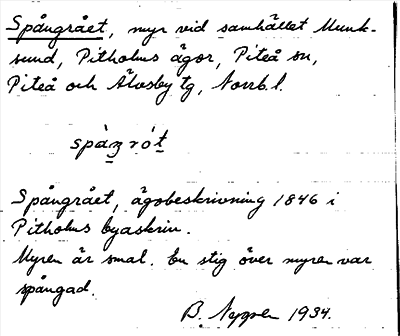 Spångrået, myr vid samhället Munk-
sund, Pitholms ägor, Piteå sn,
Piteå och Älvsby tg, Norrb. l.
spàŋ rót
Spångrået, ägobeskrivning 1846 i
Pitholms byaskrin.
Myren är smal. En stig över myren var
spångad.
B. Nygren 1934.